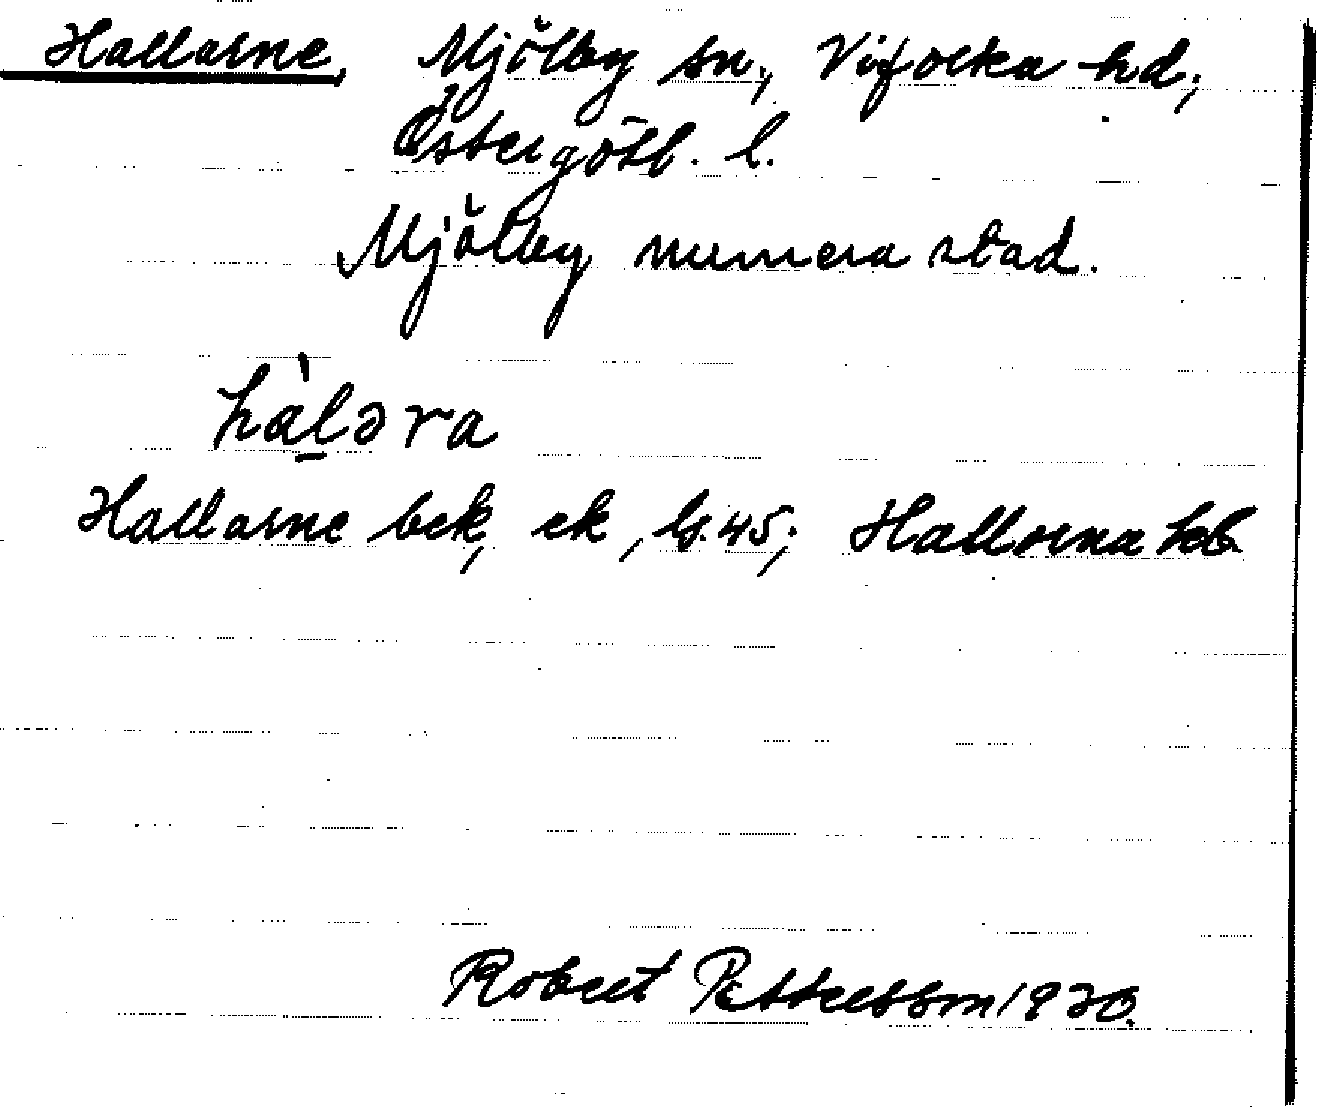 Hallarne, Mjölby sn., Vifolka hd,
Östergötl. l.
Mjölby numera stad.
hàl̠əra
Hallarne bek, ek, ls. 45; Hallorna hb
Robert Pettersson 1930.